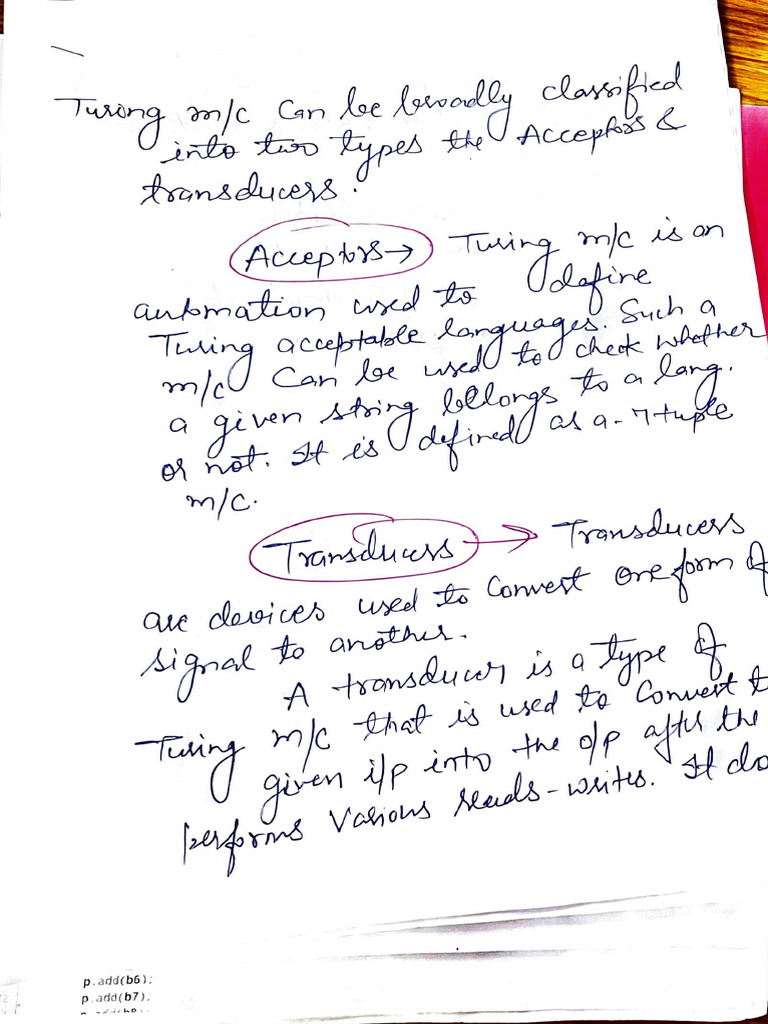 Turing m/c can be broadly classified
into two types the Acceptors &
transducers.
Acceptors → Turing m/c is an
automation used to define
Turing acceptable languages. Such a
m/c can be used to check whether
a given string belongs to a lang.
or not. It is defined as a - 7 tuple
m/c.
Transducers → Transducers
are devices used to convert one form of
signal to another.
A transducer is a type of
Turing m/c that is used to convert t
given i/p into the o/p after the
performs various reads-writes. It do
p.add(b6);
p.add(b7);